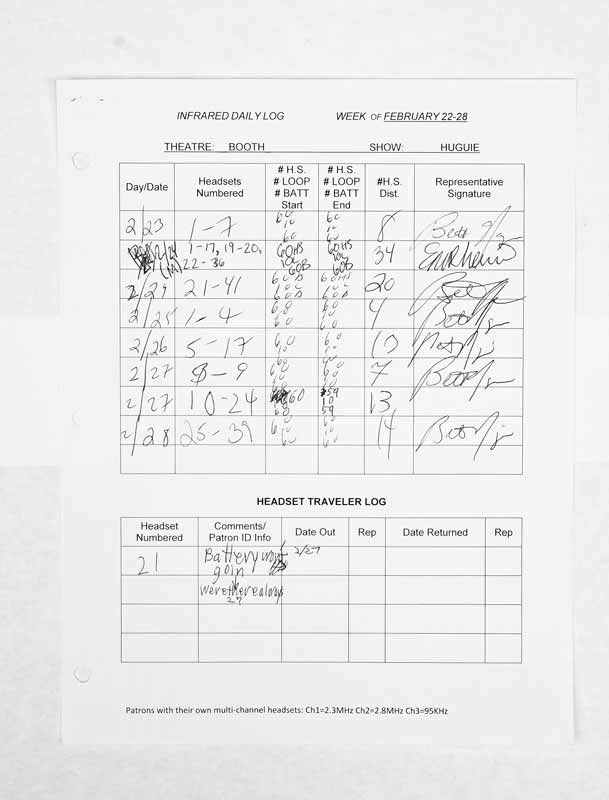 INFRARED DAILY LOG WEEK OF FEBRUARY 22-28
THEATRE: BOOTH SHOW: HUGUIE
Day/Date Headsets Numbered # H.S. # LOOP # BATT Start # H.S. # LOOP # BATT End #H.S. Dist. Representative Signature
2/23 1-7 60 10 60 60 10 60 8
2/24 1-17, 19-20, 22-36 60HS 10L 60B 60HS 10L 60B 34
2/24 21-41 20
2/25 1-4 4
2/26 5-17 60 10 60 10
2/27 8-9 7
2/27 10-24 60 59 10 59 13
2/28 25-39 60 10 60 60 10 60 14
HEADSET TRAVELER LOG
Headset Numbered Comments/ Patron ID Info Date Out Rep Date Returned Rep
21 Battery won't 2/27
goin
were there always
27
Patrons with their own multi-channel headsets: Ch1=2.3MHz Ch2=2.8MHz Ch3=95KHz